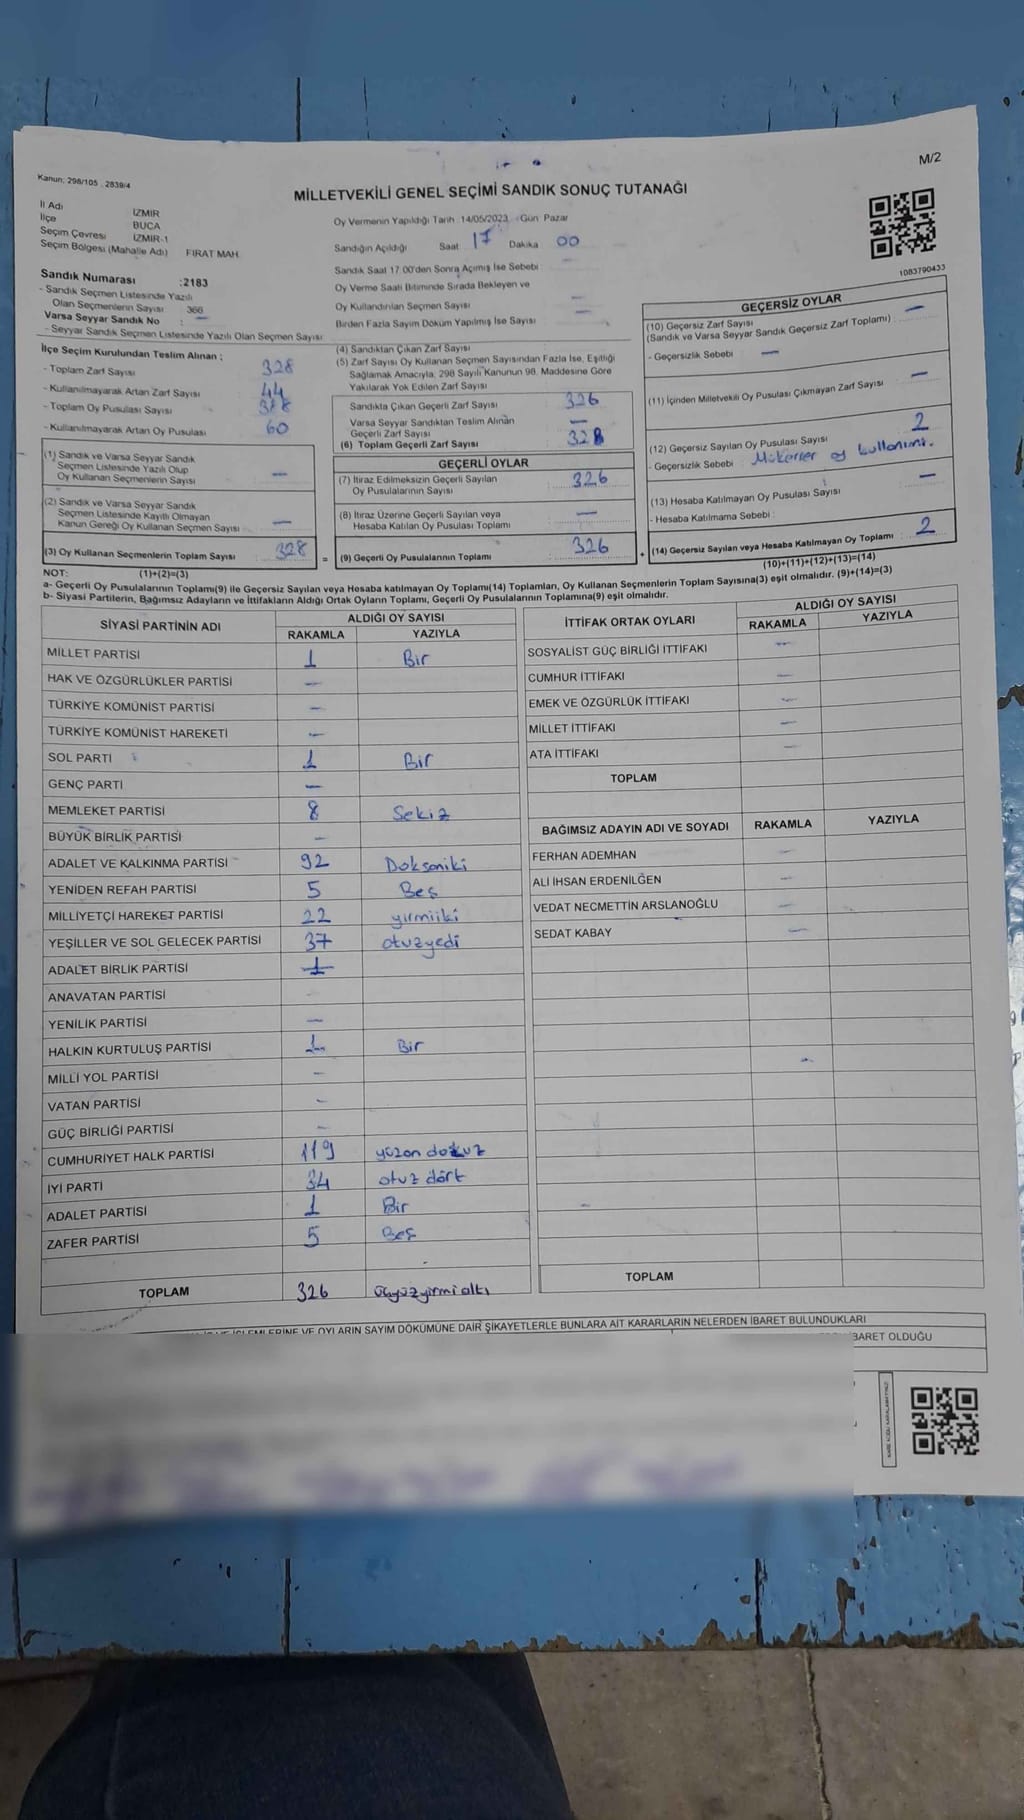 M/2
Kanun: 298/105 , 2839/4
MİLLETVEKİLİ GENEL SEÇİMİ SANDIK SONUÇ TUTANAĞI
İl Adı İZMİR
İlçe BUCA
Seçim Çevresi İZMİR-1
Seçim Bölgesi (Mahalle Adı) FIRAT MAH.
Oy Vermenin Yapıldığı Tarih : 14/05/2023 Gün: Pazar
Sandığın Açıldığı Saat 17 Dakika 00
Sandık Saat 17.00'den Sonra Açılmış İse Sebebi —
Oy Verme Saati Bitiminde Sırada Bekleyen ve
Oy Kullandırılan Seçmen Sayısı —
Birden Fazla Sayım Döküm Yapılmış İse Sayısı —
1083790433
Sandık Numarası :2183
- Sandık Seçmen Listesinde Yazılı
Olan Seçmenlerin Sayısı 366
Varsa Seyyar Sandık No : —
- Seyyar Sandık Seçmen Listesinde Yazılı Olan Seçmen Sayısı
İlçe Seçim Kurulundan Teslim Alınan :
- Toplam Zarf Sayısı 328
- Kullanılmayarak Artan Zarf Sayısı 44
- Toplam Oy Pusulası Sayısı
- Kullanılmayarak Artan Oy Pusulası 60
(1) Sandık ve Varsa Seyyar Sandık
Seçmen Listesinde Yazılı Olup
Oy Kullanan Seçmenlerin Sayısı —
(2) Sandık ve Varsa Seyyar Sandık
Seçmen Listesinde Kayıtlı Olmayan
Kanun Gereği Oy Kullanan Seçmen Sayısı —
(3) Oy Kullanan Seçmenlerin Toplam Sayısı 328 =
(1)+(2)=(3)
(4) Sandıktan Çıkan Zarf Sayısı
(5) Zarf Sayısı Oy Kullanan Seçmen Sayısından Fazla İse, Eşitliği
Sağlamak Amacıyla, 298 Sayılı Kanunun 98. Maddesine Göre
Yakılarak Yok Edilen Zarf Sayısı
Sandıkta Çıkan Geçerli Zarf Sayısı 326
Varsa Seyyar Sandıktan Teslim Alınan
Geçerli Zarf Sayısı —
(6) Toplam Geçerli Zarf Sayısı 328
GEÇERLİ OYLAR
(7) İtiraz Edilmeksizin Geçerli Sayılan
Oy Pusulalarının Sayısı 326
(8) İtiraz Üzerine Geçerli Sayılan veya
Hesaba Katılan Oy Pusulası Toplamı —
(9) Geçerli Oy Pusulalarının Toplamı 326 +
GEÇERSİZ OYLAR
(10) Geçersiz Zarf Sayısı —
(Sandık ve Varsa Seyyar Sandık Geçersiz Zarf Toplamı)
- Geçersizlik Sebebi —
(11) İçinden Milletvekili Oy Pusulası Çıkmayan Zarf Sayısı —
(12) Geçersiz Sayılan Oy Pusulası Sayısı 2
- Geçersizlik Sebebi Mükerrer oy kullanımı.
(13) Hesaba Katılmayan Oy Pusulası Sayısı —
- Hesaba Katılmama Sebebi :
(14) Geçersiz Sayılan veya Hesaba Katılmayan Oy Toplamı 2
(10)+(11)+(12)+(13)=(14)
NOT:
a- Geçerli Oy Pusulalarının Toplamı(9) ile Geçersiz Sayılan veya Hesaba katılmayan Oy Toplamı(14) Toplamları, Oy Kullanan Seçmenlerin Toplam Sayısına(3) eşit olmalıdır. (9)+(14)=(3)
b- Siyasi Partilerin, Bağımsız Adayların ve İttifakların Aldığı Ortak Oyların Toplamı, Geçerli Oy Pusulalarının Toplamına(9) eşit olmalıdır.
SİYASİ PARTİNİN ADI ALDIĞI OY SAYISI
RAKAMLA YAZIYLA
MİLLET PARTİSİ 1 Bir
HAK VE ÖZGÜRLÜKLER PARTİSİ —
TÜRKİYE KOMÜNİST PARTİSİ —
TÜRKİYE KOMÜNİST HAREKETİ —
SOL PARTİ 1 Bir
GENÇ PARTİ —
MEMLEKET PARTİSİ 8 Sekiz
BÜYÜK BİRLİK PARTİSİ —
ADALET VE KALKINMA PARTİSİ 92 Doksaniki
YENİDEN REFAH PARTİSİ 5 Beş
MİLLİYETÇİ HAREKET PARTİSİ 22 yirmiiki
YEŞİLLER VE SOL GELECEK PARTİSİ 37 otuzyedi
ADALET BİRLİK PARTİSİ
ANAVATAN PARTİSİ —
YENİLİK PARTİSİ —
HALKIN KURTULUŞ PARTİSİ 1 Bir
MİLLİ YOL PARTİSİ —
VATAN PARTİSİ —
GÜÇ BİRLİĞİ PARTİSİ —
CUMHURİYET HALK PARTİSİ 119 yüzon dokuz
İYİ PARTİ 34 otuz dört
ADALET PARTİSİ 1 Bir
ZAFER PARTİSİ 5 Beş
TOPLAM 326 üçyüzyirmialtı
İTTİFAK ORTAK OYLARI ALDIĞI OY SAYISI
RAKAMLA YAZIYLA
SOSYALİST GÜÇ BİRLİĞİ İTTİFAKI —
CUMHUR İTTİFAKI —
EMEK VE ÖZGÜRLÜK İTTİFAKI —
MİLLET İTTİFAKI —
ATA İTTİFAKI —
TOPLAM
BAĞIMSIZ ADAYIN ADI VE SOYADI RAKAMLA YAZIYLA
FERHAN ADEMHAN —
ALİ İHSAN ERDENİLĞEN —
VEDAT NECMETTİN ARSLANOĞLU —
SEDAT KABAY —
TOPLAM
OYLARIN SAYIM DÖKÜMÜNE DAİR ŞİKAYETLERLE BUNLARA AİT KARARLARIN NELERDEN İBARET BULUNDUKLARI
İBARET OLDUĞU